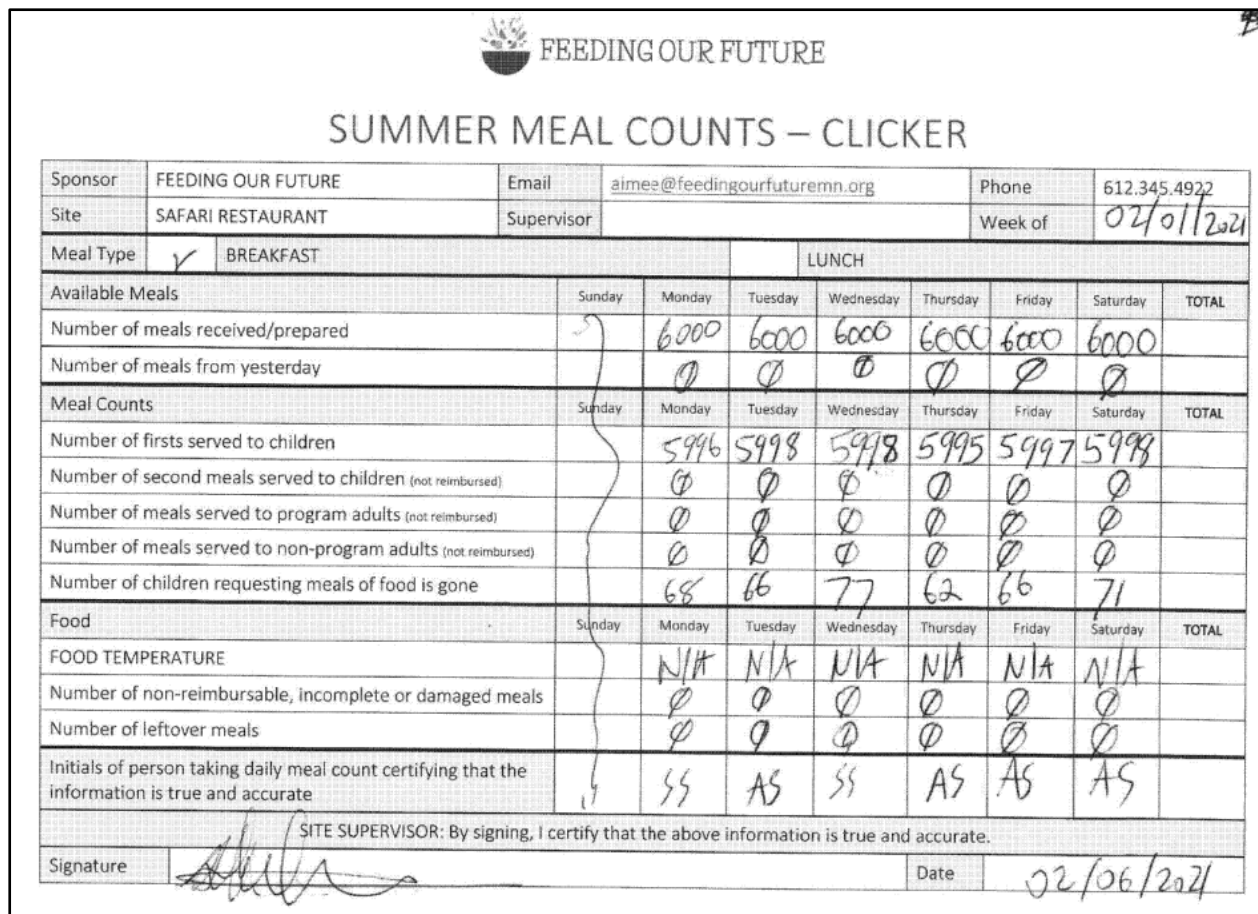 FEEDING OUR FUTURE
SUMMER MEAL COUNTS – CLICKER
Sponsor FEEDING OUR FUTURE Email aimee@feedingourfuturemn.org Phone 612.345.4922
Site SAFARI RESTAURANT Supervisor Week of 02/01/2021
Meal Type BREAKFAST LUNCH
Available Meals Sunday Monday Tuesday Wednesday Thursday Friday Saturday TOTAL
Number of meals received/prepared 6000 6000 6000 6000 6000 6000
Number of meals from yesterday 0 0 0 0 0 0
Meal Counts Sunday Monday Tuesday Wednesday Thursday Friday Saturday TOTAL
Number of firsts served to children 5996 5998 5998 5995 5997 5999
Number of second meals served to children (not reimbursed) 0 0 0 0 0 0
Number of meals served to program adults (not reimbursed) 0 0 0 0 0 0
Number of meals served to non-program adults (not reimbursed) 0 0 0 0 0 0
Number of children requesting meals of food is gone 68 66 77 62 66 71
Food Sunday Monday Tuesday Wednesday Thursday Friday Saturday TOTAL
FOOD TEMPERATURE N/A N/A N/A N/A N/A N/A
Number of non-reimbursable, incomplete or damaged meals 0 0 0 0 0 0
Number of leftover meals 0 0 0 0 0 0
Initials of person taking daily meal count certifying that the
information is true and accurate SS AS SS AS AS AS
SITE SUPERVISOR: By signing, I certify that the above information is true and accurate.
Signature Date 02/06/2021